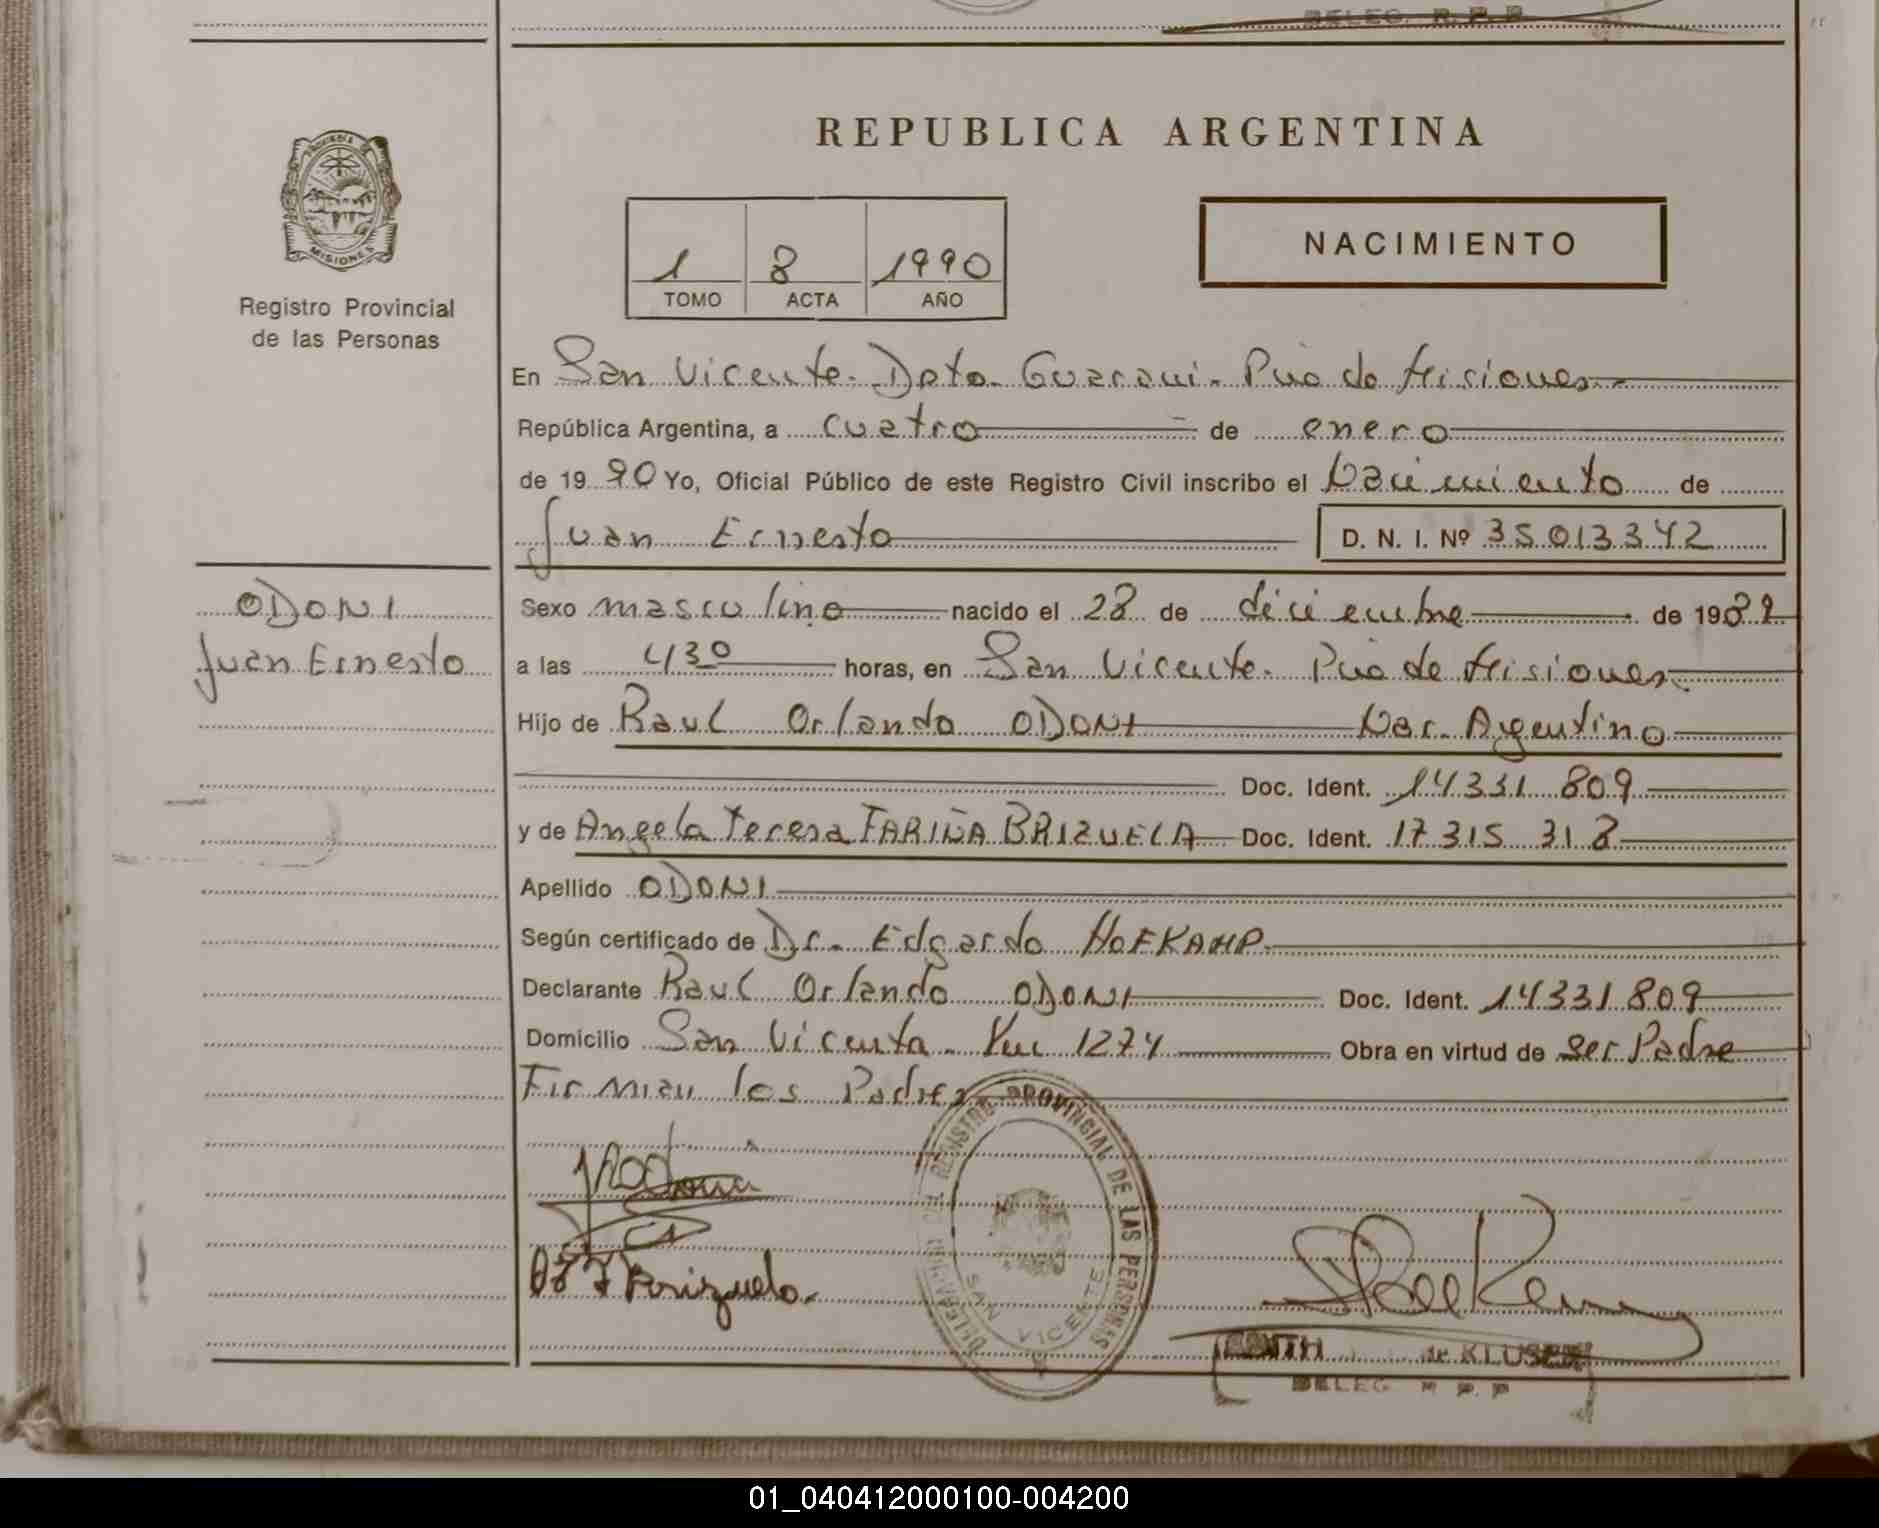 DELEG. R. P. P.
REPUBLICA ARGENTINA
PROVINCIA DE
MISIONES
Registro Provincial
de las Personas
1 8 1990
TOMO ACTA AÑO
NACIMIENTO
En San Vicente. Dpto. Guarani. Pcia de Misiones
República Argentina, a cuatro de enero
de 19 90 Yo, Oficial Público de este Registro Civil inscribo el Nacimiento de
Juan Ernesto D. N. I. Nº 35013342
ODONI
Juan Ernesto
Sexo masculino nacido el 28 de diciembre de 1989
a las 430 horas, en San Vicente. Pcia de Misiones
Hijo de Raul Orlando ODONI Nac. Argentino
Doc. Ident. 14331 809
y de Angela Teresa FARIÑA BRIZUELA Doc. Ident. 17 315 318
Apellido ODONI
Según certificado de Dr. Edgardo HOFKAMP.
Declarante Raul Orlando ODONI Doc. Ident. 14331 809
Domicilio San Vicente. Km 1274 Obra en virtud de Ser Padre
Firman los Padres
REGISTRO PROVINCIAL DE LAS PERSONAS
SAN VICENTE
Brizuela.
de KLUSEN
DELEG R. P. P
01_040412000100-004200